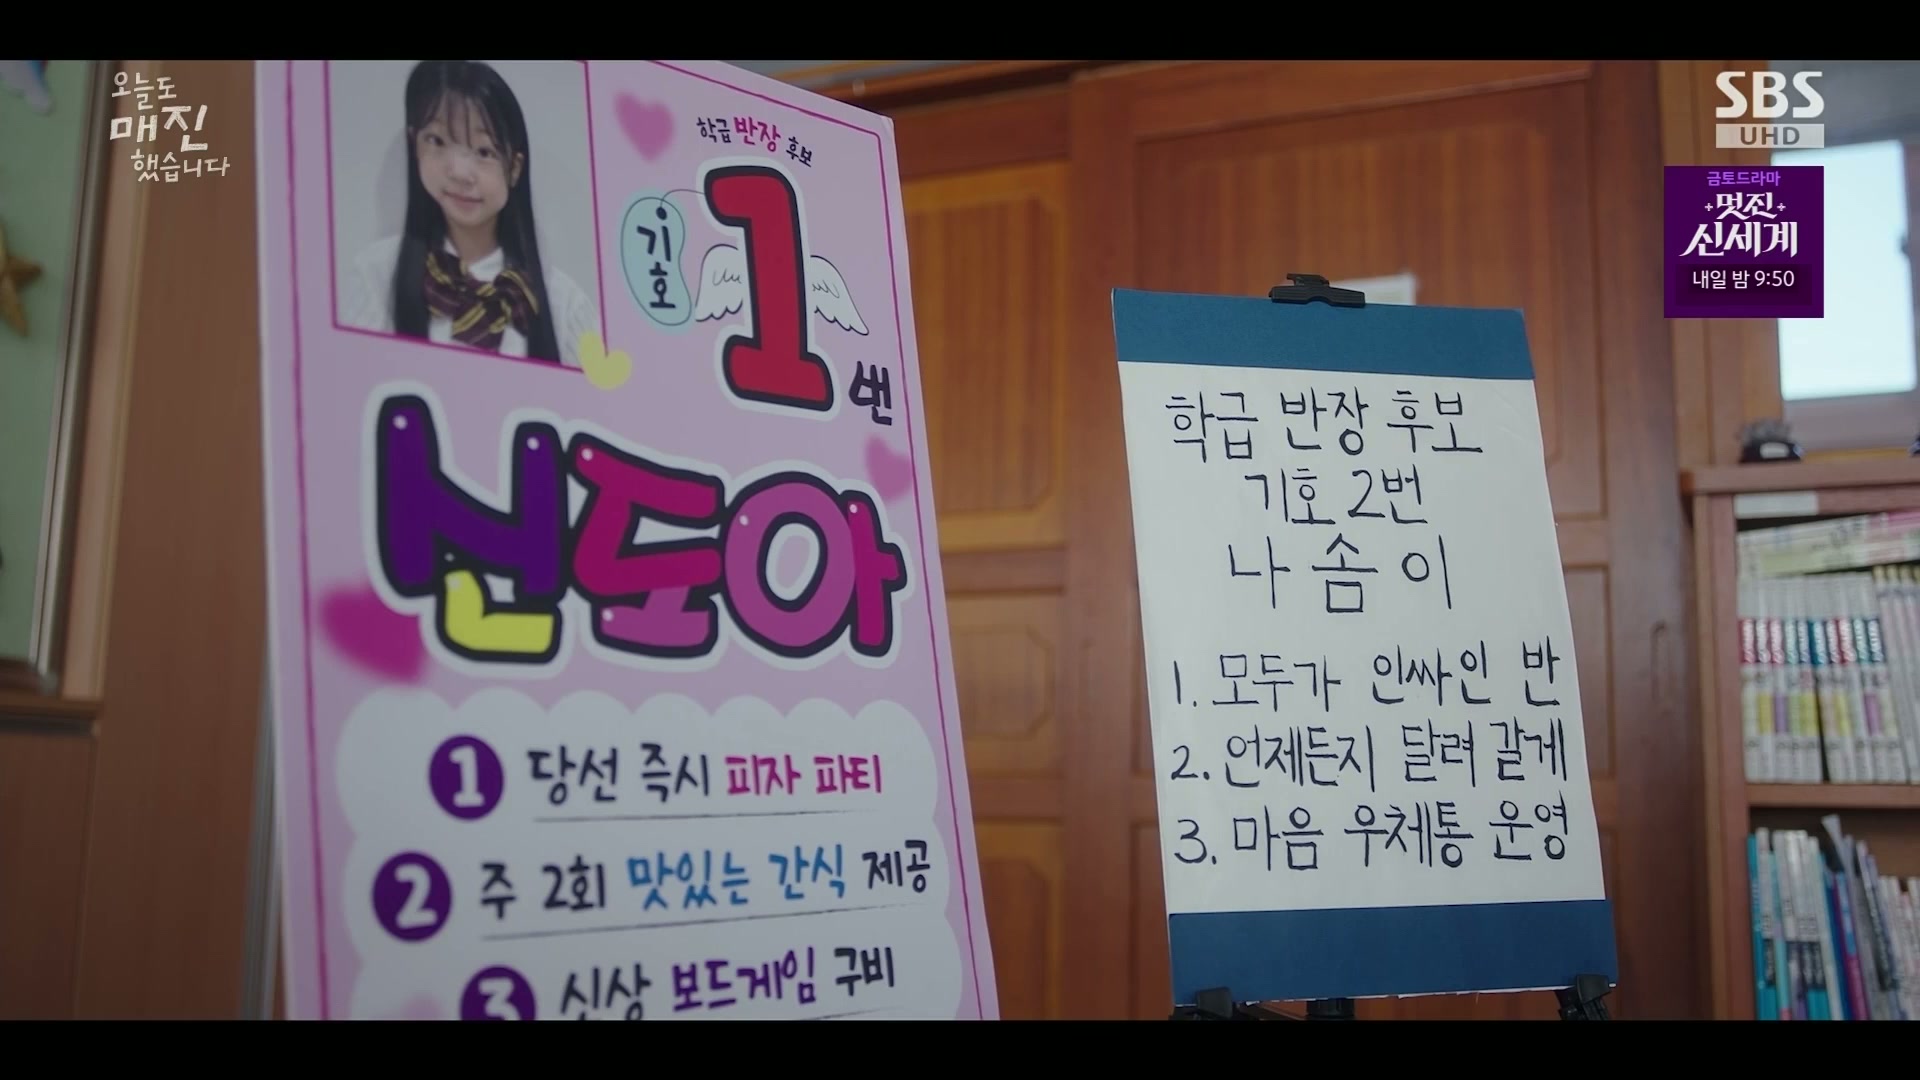 오늘도
매진
했습니다
SBS
UHD
금토드라마
멋진
신세계
내일 밤 9:50
학급 반장 후보
기호
1
번
신도아
1 당선 즉시 피자 파티
2 주 2회 맛있는 간식 제공
3 신상 보드게임 구비
학급 반장 후보
기호 2번
나솜이
1. 모두가 인싸인 반
2. 언제든지 달려 갈게
3. 마음 우체통 운영